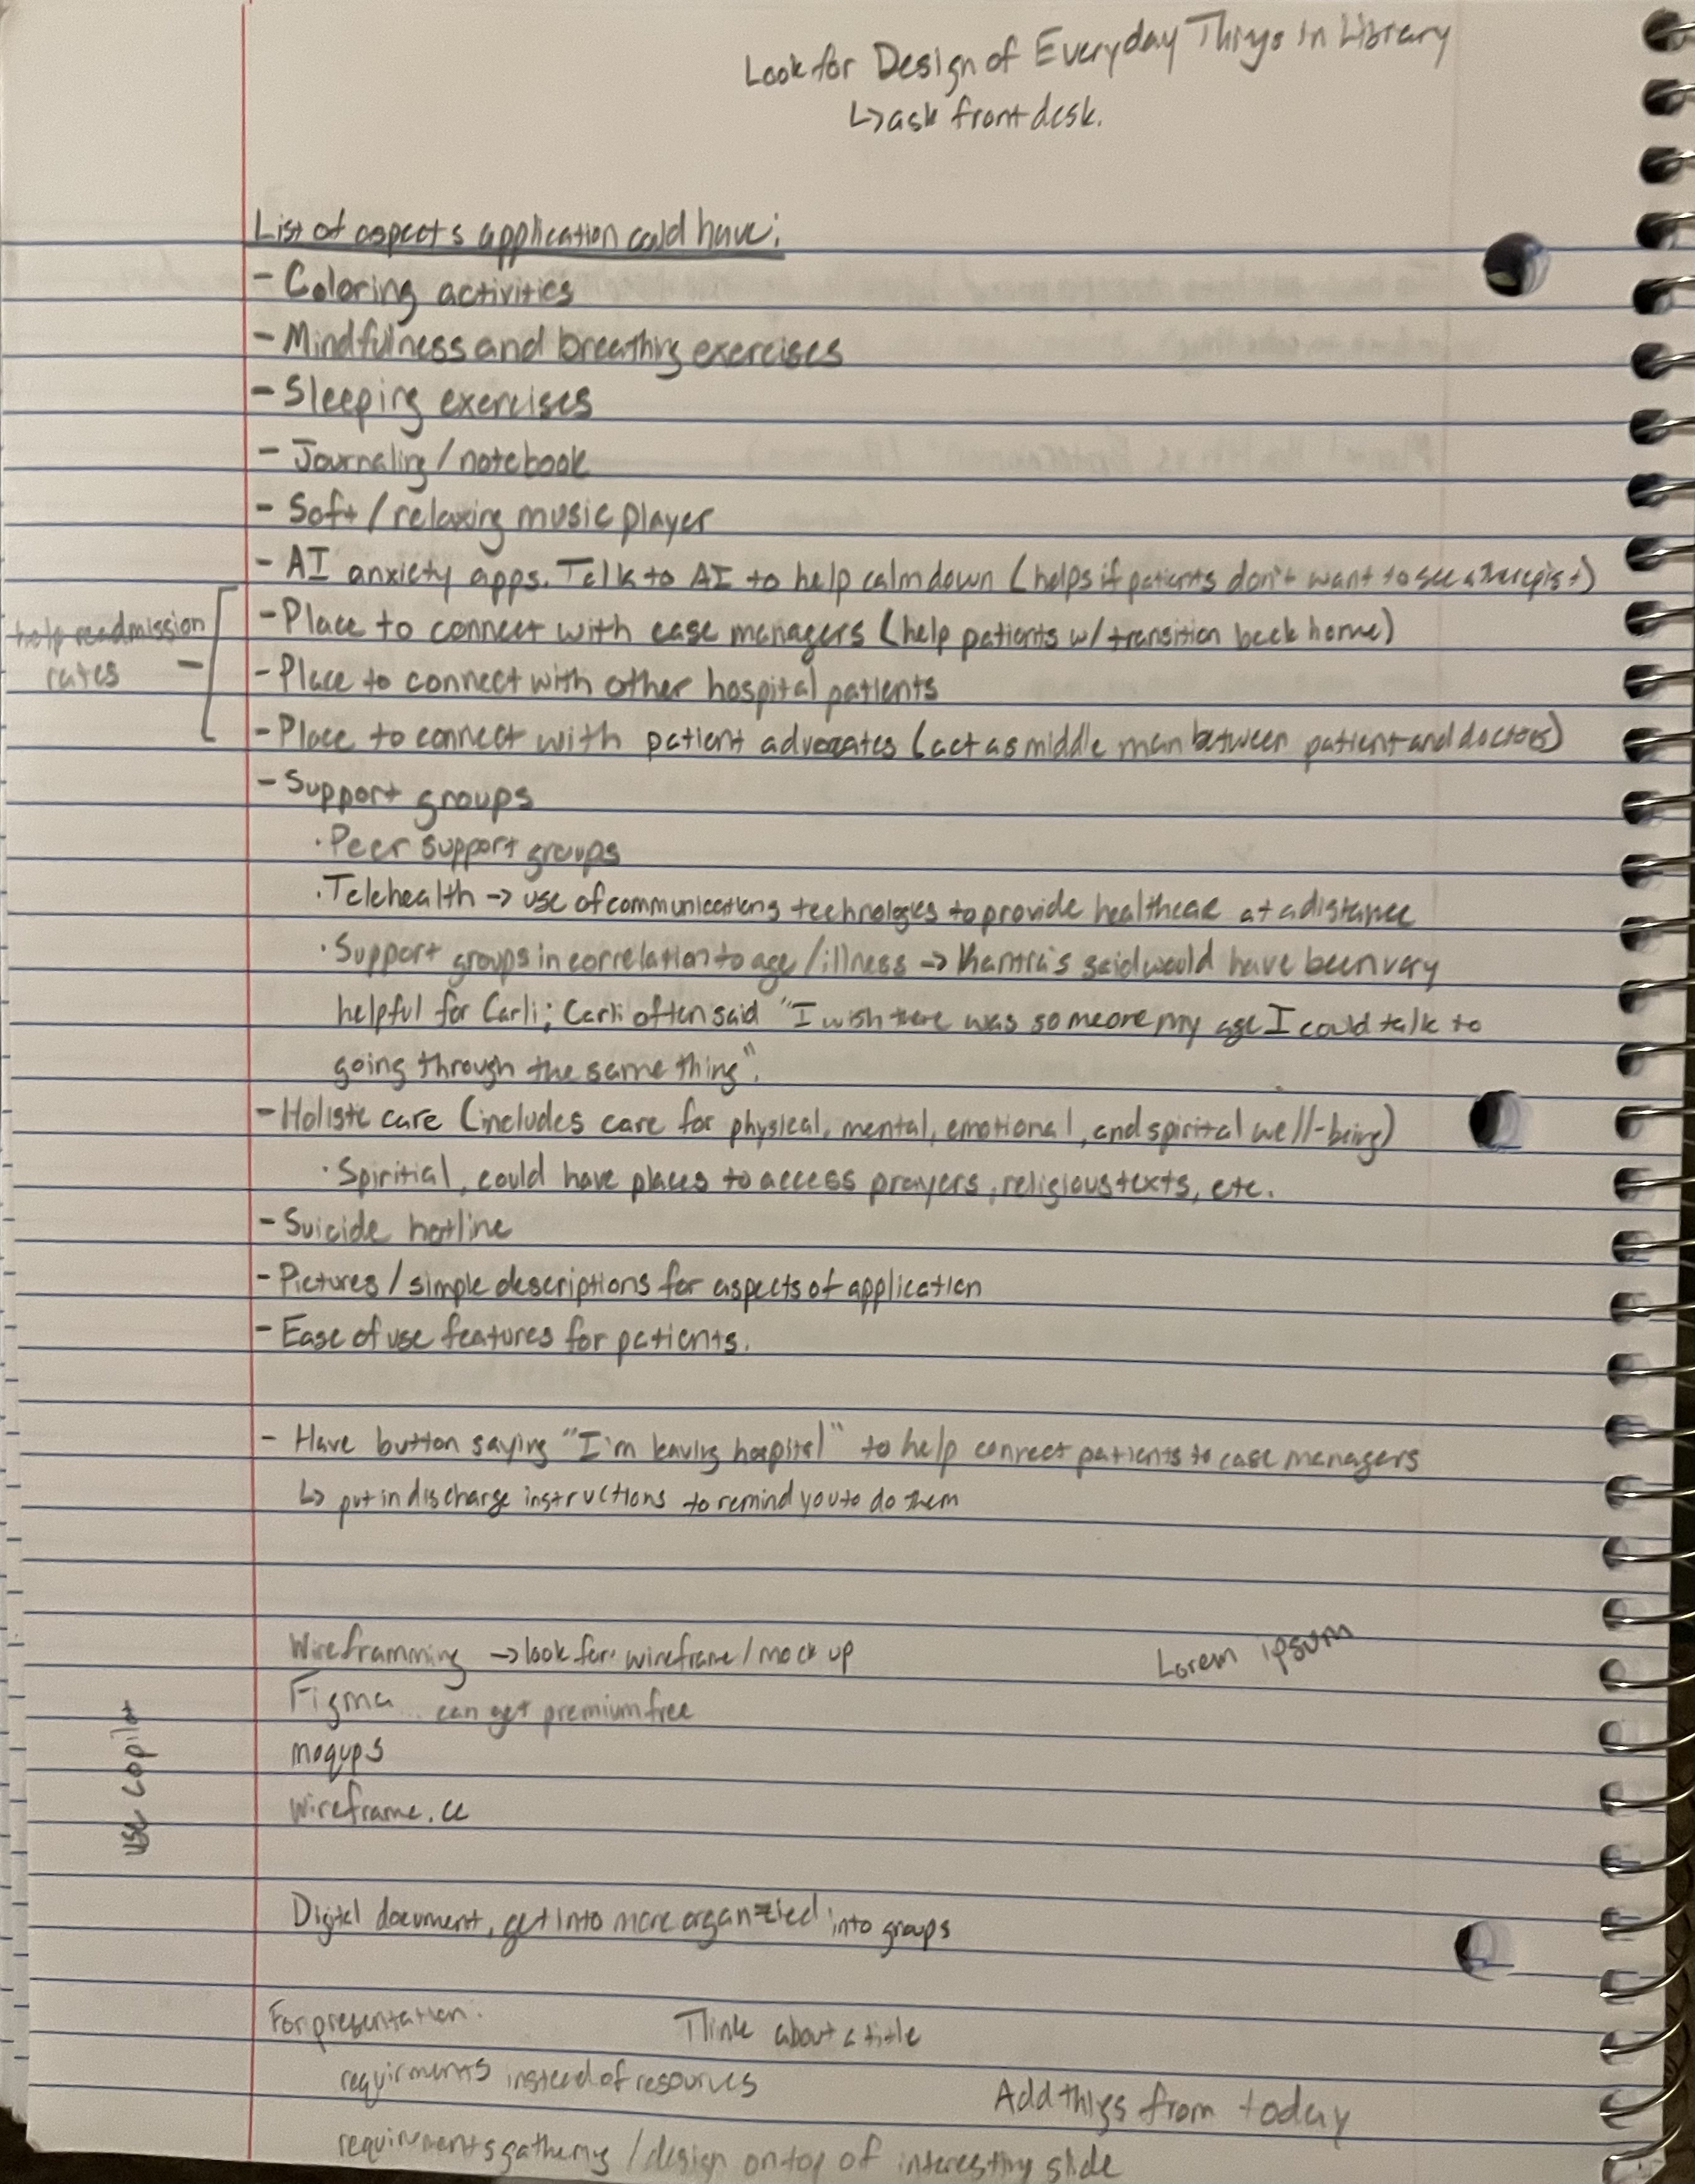 Look for Design of Everyday Things in Library
↳ ask front desk.
List of aspects application could have:
- Coloring activities
- Mindfulness and breathing exercises
- Sleeping exercises
- Journaling / notebook
- Soft / relaxing music player
- AI anxiety apps. Talk to AI to help calm down (helps if patients don't want to see a therapist)
help readmission rates –
- Place to connect with case managers (help patients w/ transition back home)
- Place to connect with other hospital patients
- Place to connect with patient advocates (act as middle man between patient and doctors)
- Support groups
· Peer support groups
· Telehealth → use of communications technologies to provide healthcare at a distance
· Support groups in correlation to age / illness → said would have been very
helpful for Carli; Carli often said "I wish there was someone my age I could talk to
going through the same thing".
- Holistic care (includes care for physical, mental, emotional, and spirital well-being)
· Spiritial, could have places to access prayers, religious texts, etc.
- Suicide hotline
- Pictures / simple descriptions for aspects of application
- Ease of use features for patients.
- Have button saying "I'm leaving hospital" to help connect patients to case managers
↳ put in discharge instructions to remind you to do them
Wireframming → look for: wireframe / mock up
Lorem ipsum
Figma can get premium free
moqups
wireframe.cc
use copilot
Digital document, get into more organized into groups
For presentation:
Think about a title
requirments instead of resources
Add things from today
requirements gathering / design on top of interesting slide